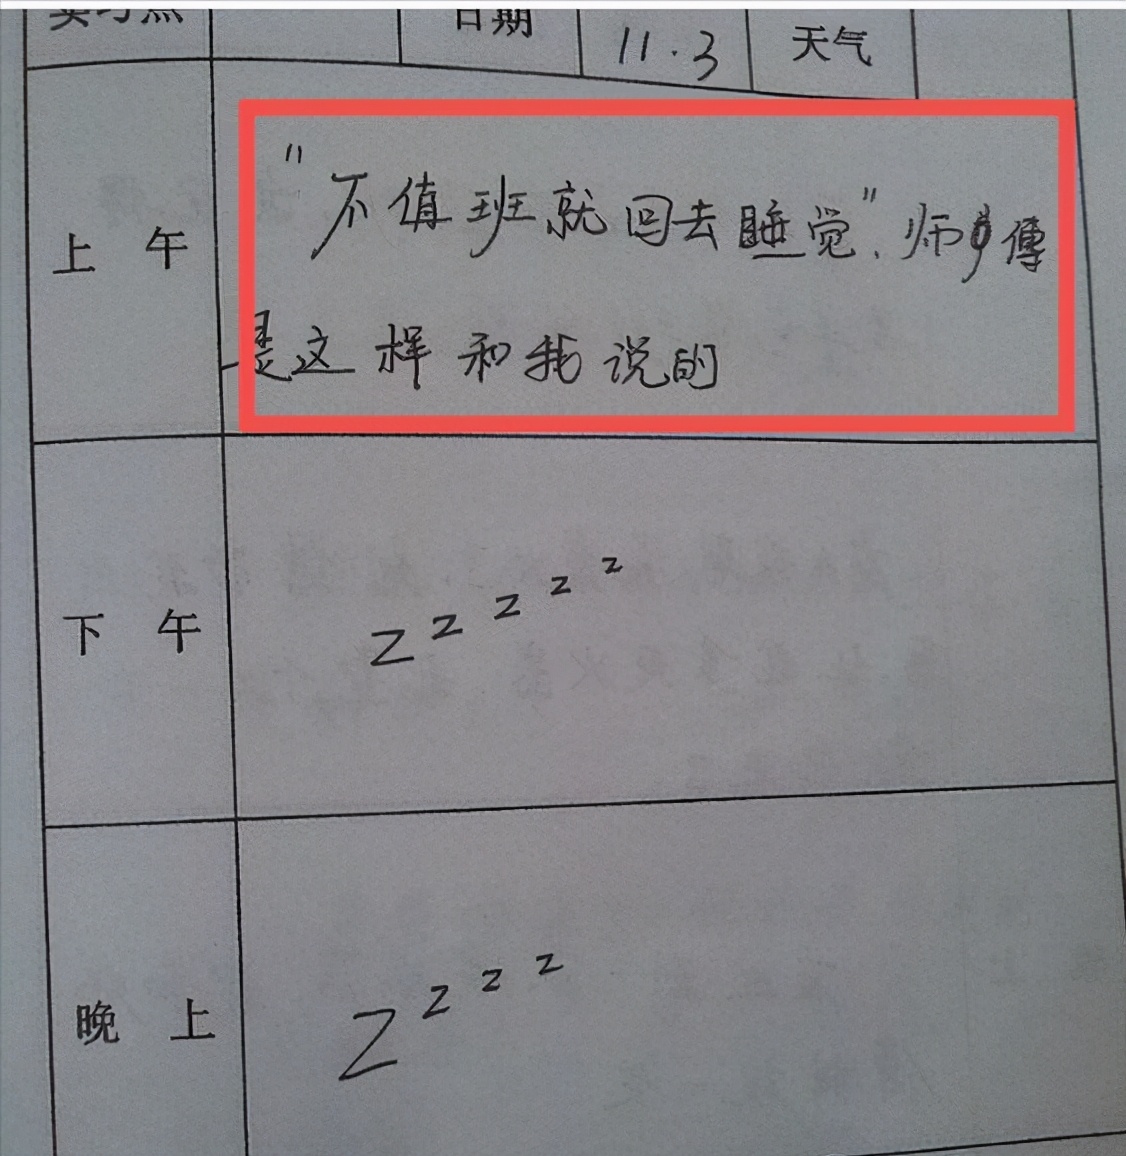 实习点 日期 11.3 天气
"不值班就回去睡觉",师傅
上午
是这样和我说的
下午 z z z z z
晚上 Z z z z